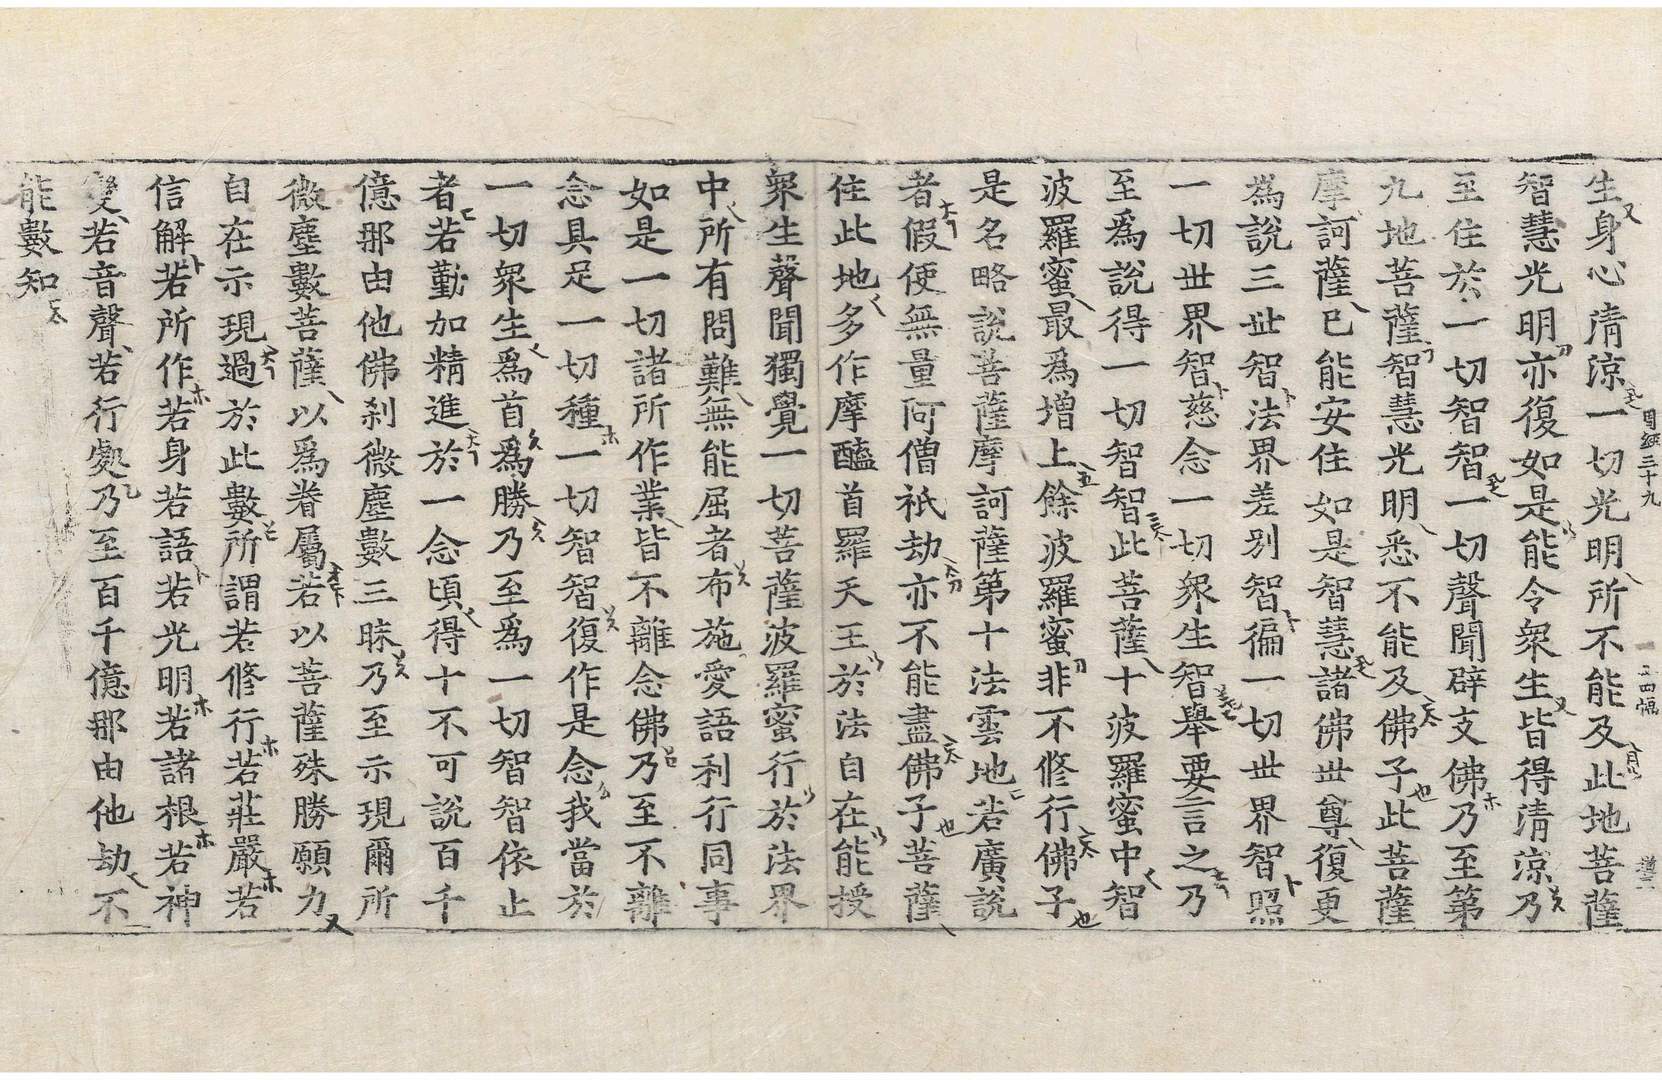 生身心清涼一切光明所不能及此地菩薩
周經三十九
智慧光明亦復如是能令衆生皆得清涼乃
至住於一切智智一切聲聞辟支佛乃至第
九地菩薩智慧光明悉不能及佛子此菩薩
摩訶薩已能安住如是智慧諸佛世尊復更
爲說三世智法界差別智徧一切世界智照
一切世界智慈念一切衆生智舉要言之乃
至爲說得一切智智此菩薩十波羅蜜中智
波羅蜜最爲增上餘波羅蜜非不修行佛子
是名略說菩薩摩訶薩第十法雲地若廣說
者假使無量阿僧祇劫亦不能盡佛子菩薩
住此地多作摩醯首羅天王於法自在能授
衆生聲聞獨覺一切菩薩波羅蜜行於法界
中所有問難無能屈者布施愛語利行同事
如是一切諸所作業皆不離念佛乃至不離
念具足一切種一切智智復作是念我當於
一切衆生爲首爲勝乃至爲一切智智依止
者若勤加精進於一念頃得十不可說百千
億那由他佛刹微塵數三昧乃至示現爾所
微塵數菩薩以爲眷屬若以菩薩殊勝願力
自在示現過於此數所謂若修行若莊嚴若
信解若所作若身若語若光明若諸根若神
變若音聲若行處乃至百千億那由他劫不
能數知